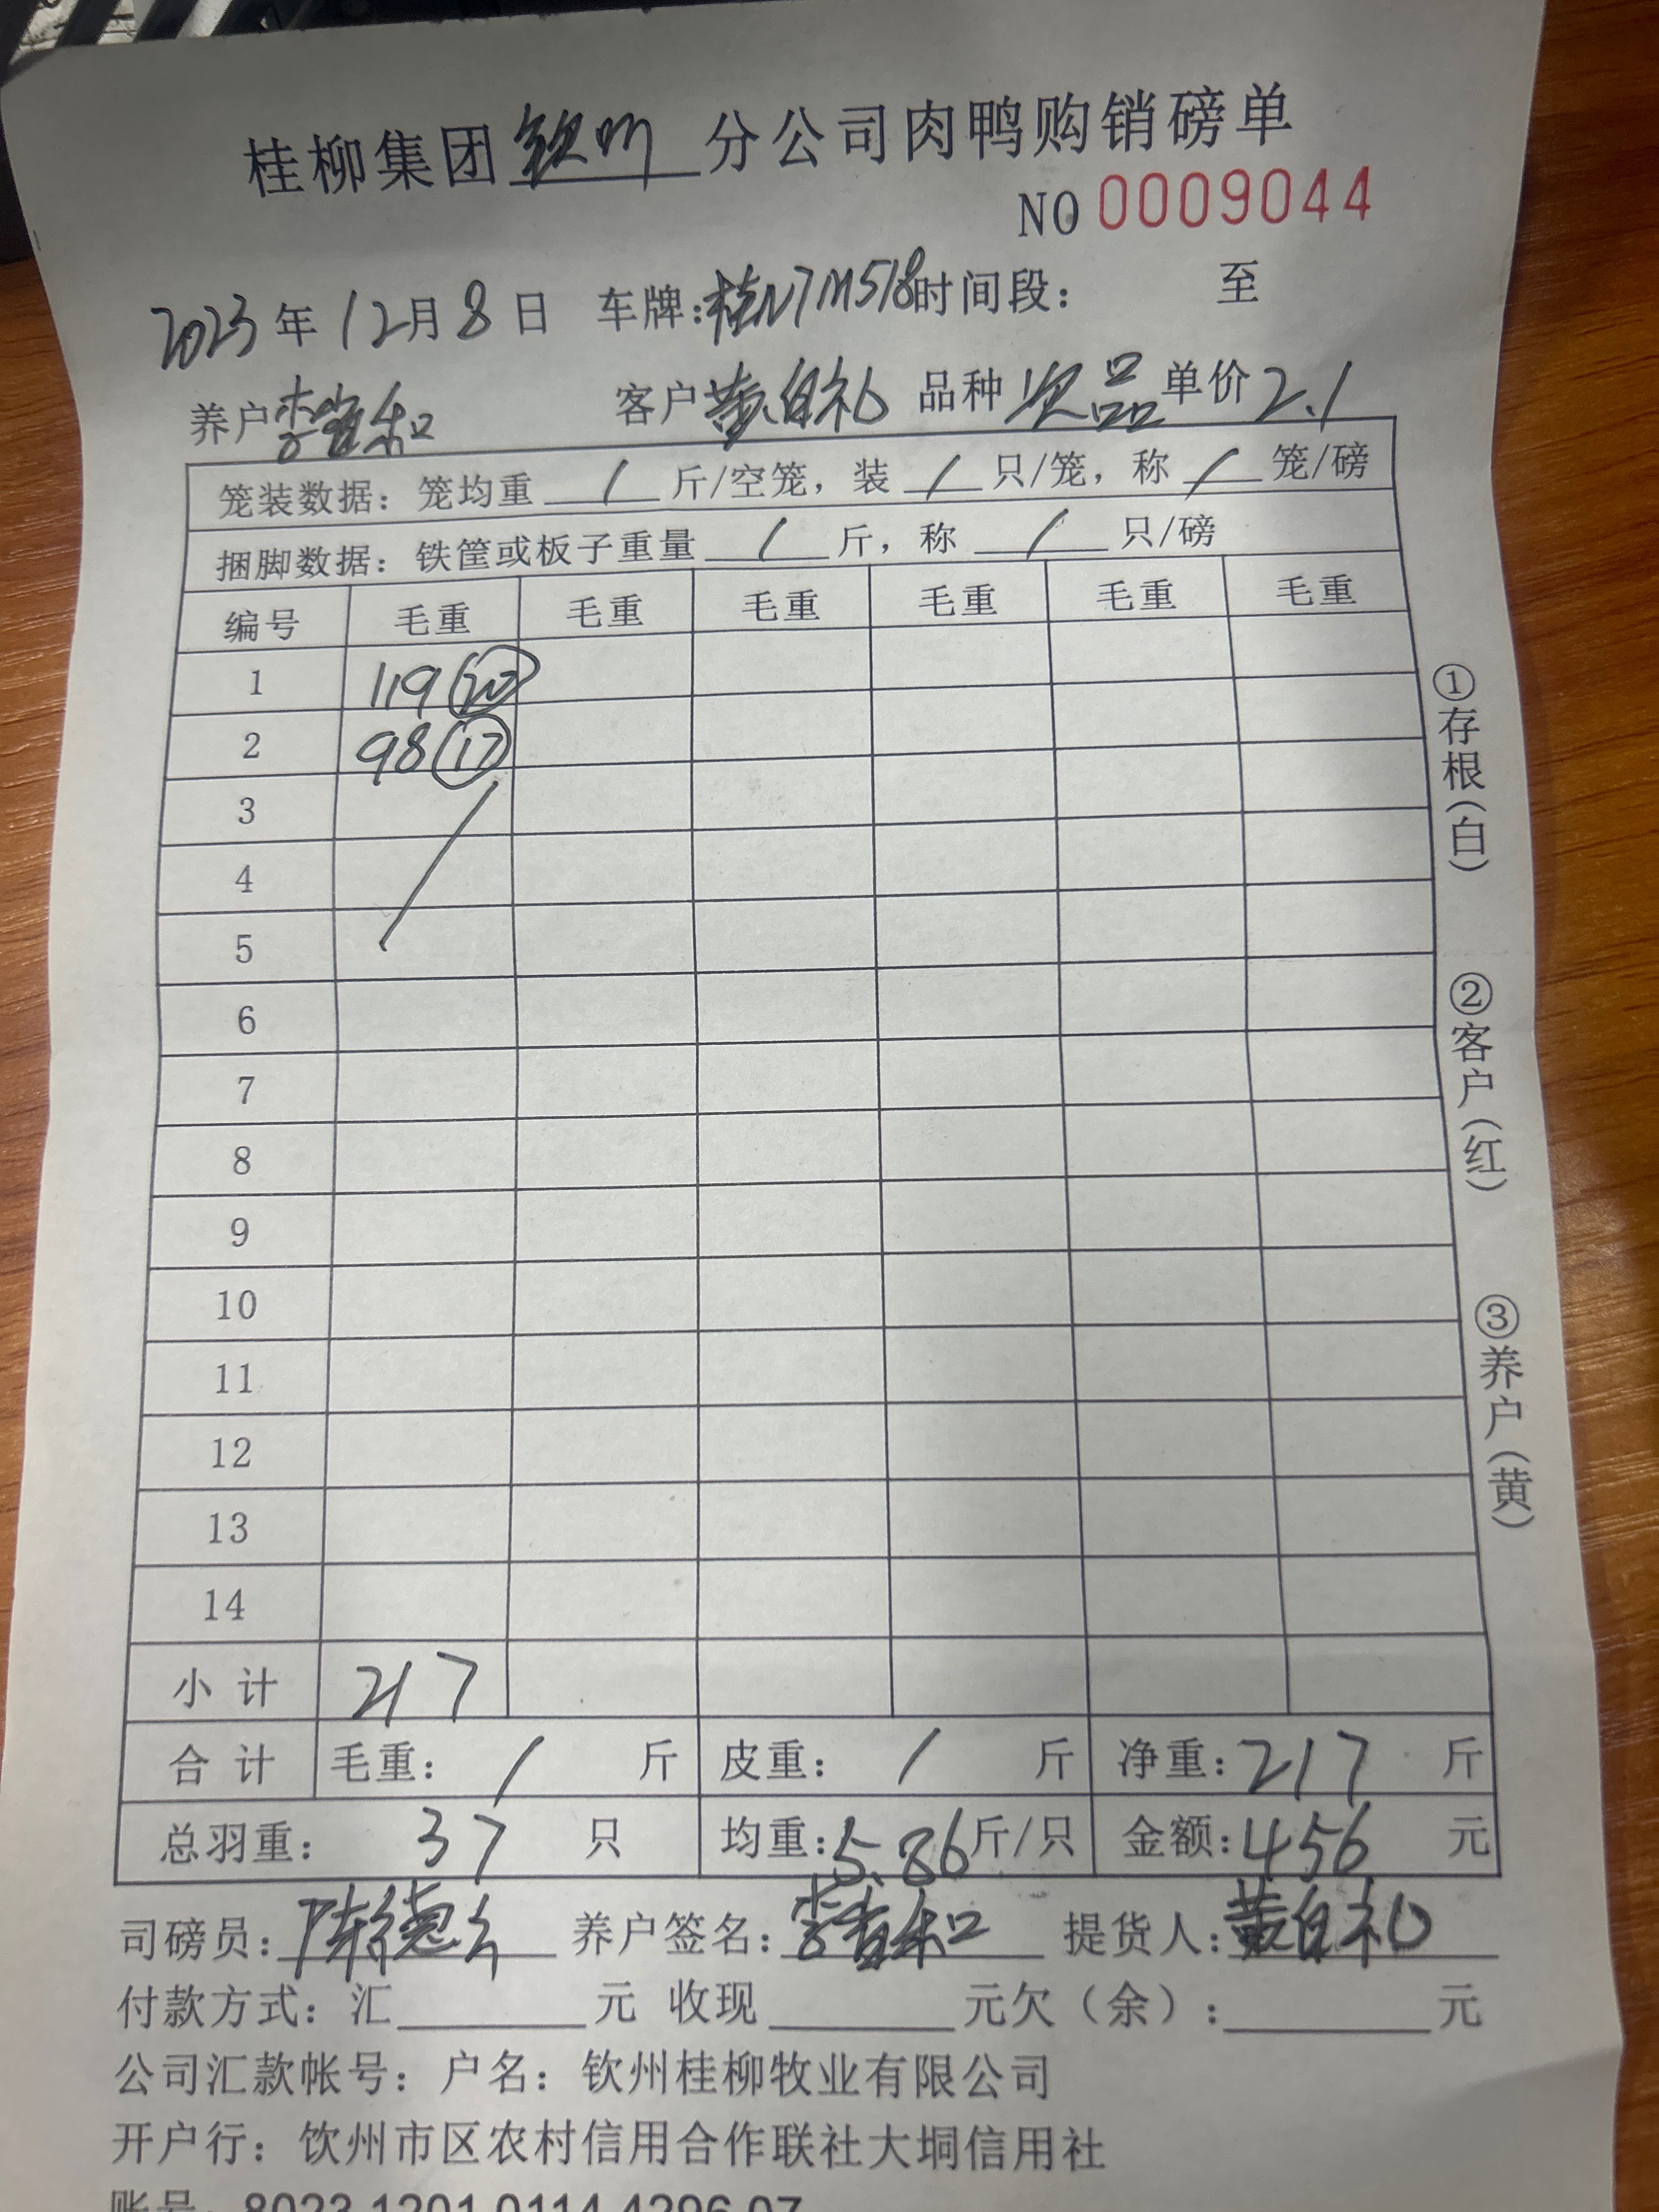 桂柳集团钦州分公司肉鸭购销磅单
NO 0009044
2023年12月8日 车牌:桂N7M518时间段: 至
养户李 和 客户黄自礼 品种次品单价2.1
笼装数据: 笼均重 / 斤/空笼, 装 / 只/笼, 称 / 笼/磅
捆脚数据: 铁筐或板子重量 / 斤, 称 / 只/磅
编号 毛重 毛重 毛重 毛重 毛重 毛重
1 119(20)
2 98(17)
3
4
5
6
7
8
9
10
11
12
13
14
小计 217
合计 毛重: / 斤 皮重: / 斤 净重:217 斤
总羽重: 37 只 均重:5.86斤/只 金额:456 元
司磅员:陈德 养户签名:李 和 提货人:黄自礼
付款方式: 汇 元 收现 元欠(余): 元
公司汇款帐号: 户名: 钦州桂柳牧业有限公司
开户行: 钦州市区农村信用合作联社大垌信用社
账号: 8023 1201 0114 4296 07
①存根(白)
②客户(红)
③养户(黄)